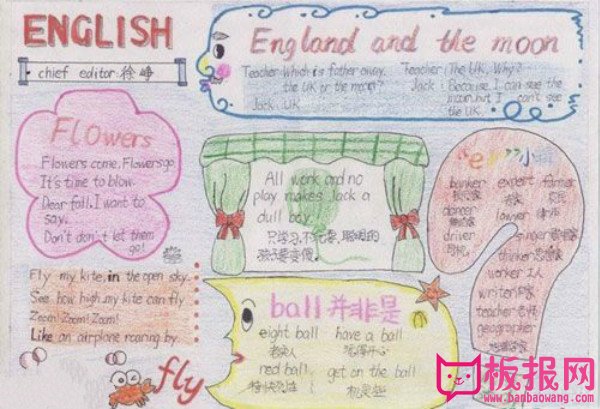 ENGLISH
chief editor:徐峥
England and the moon
Teacher: Which is father away,
the UK or the moon?
Jack: UK.
Teacher: The UK, Why?
Jack: Because, I can see the
moon, but I can't see
the UK.
Flowers
Flowers come, Flowers go.
It's time to blow.
Dear fall, I want to
say.
Don't don't let them
go!
All work and no
play makes Jack a
dull boy.
只学习,不玩耍,聪明的
孩子要变傻。
banker
expert
farmer
dancer
lawyer
driver
singer
thinker
worker 工人
writer
teacher 老师
geographer
Fly my kite in the open sky.
See how high my kite can fly
Zoom! Zoom! Zoom!
Like an airplane roaring by.
fly
ball 并非是
eight ball
have a ball
red ball
get on the ball
板报网
www.banbaowang.com